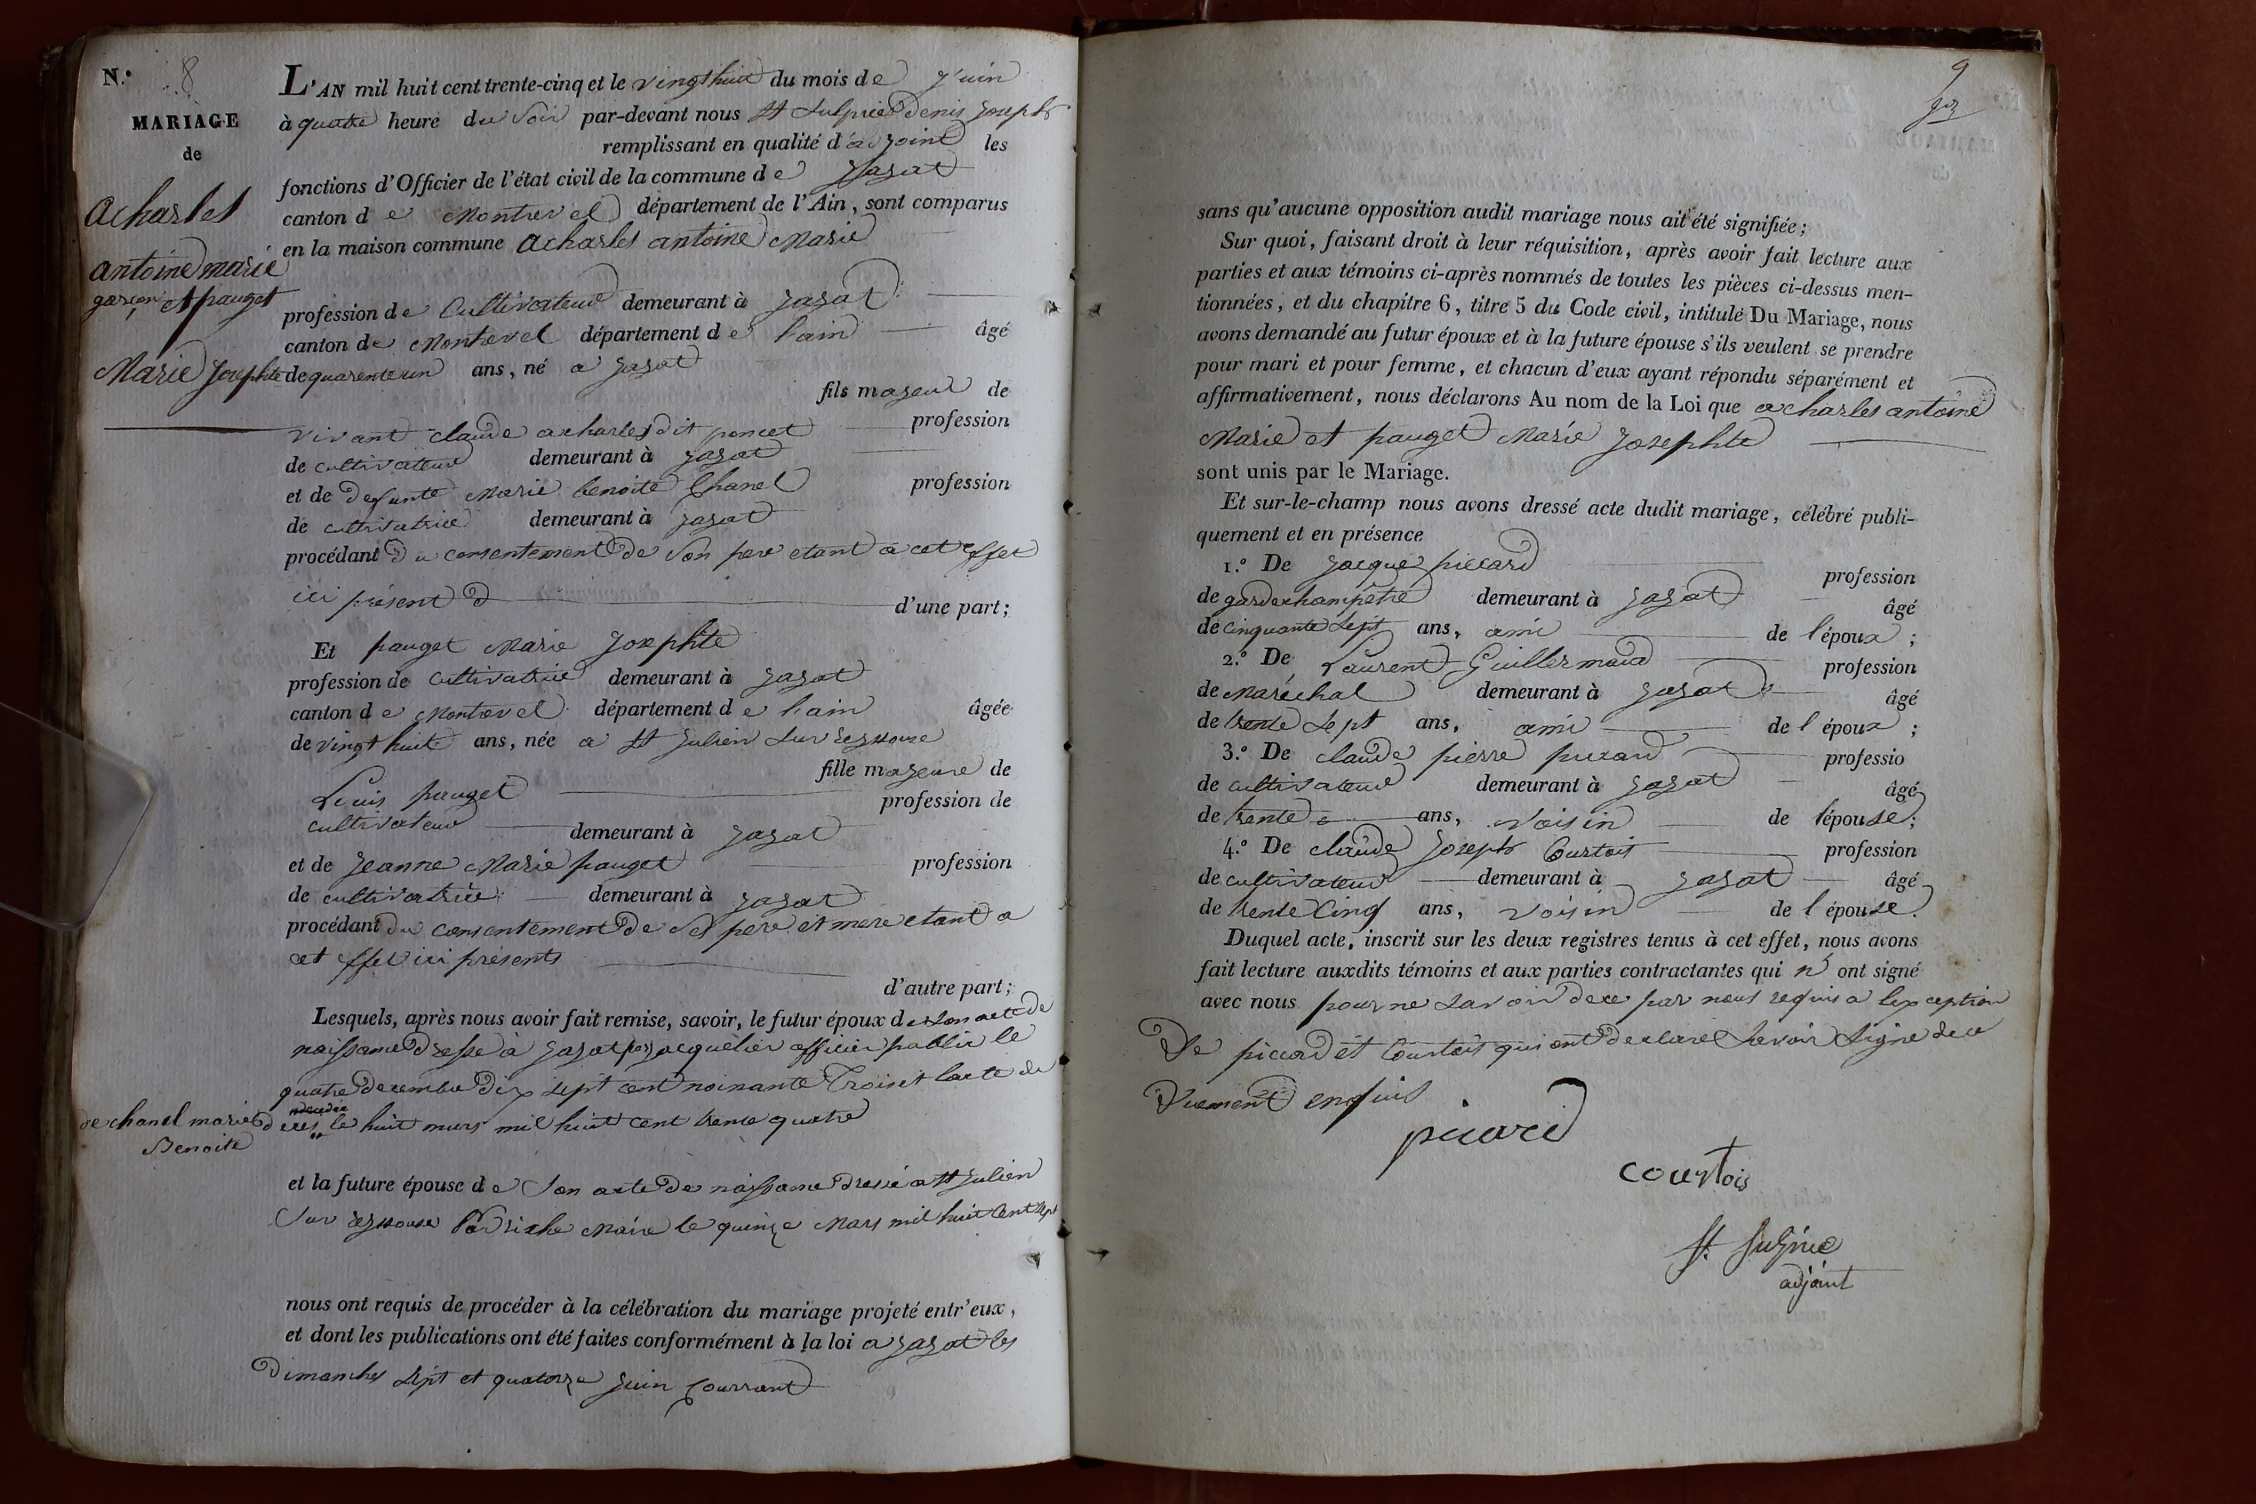 N.° 8
MARIAGE
de
acharles
antoine marie
garçon et pauget
Marie Josephte
L'AN mil huit cent trente-cinq et le vingt huit du mois de Juin
à quatre heure du Soir par-devant nous St Sulpice Denis Joseph
remplissant en qualité d'adjoint les
fonctions d'Officier de l'état civil de la commune de Jayat
canton de Montrevel département de l'Ain, sont comparus
en la maison commune acharles antoine Marie
profession de Cultivateur demeurant à Jayat
canton de Montrevel département de l'ain âgé
de quarente un ans, né a Jayat
fils majeur de
vivant claude acharles dit poncet profession
de cultivateur demeurant à Jayat
et de defunte Marie benoite Chanel profession
de cultivatrice demeurant à Jayat
procédant du consentement de Son pere etant a cet effet
ici présent d'une part;
Et pauget Marie Josephte
profession de cultivatrice demeurant à Jayat
canton de Montrevel département de l'ain âgée
de vingt huit ans, née a St Julien Sur reyssouse
fille majeure de
Louis pauget profession de
cultivateur demeurant à Jayat
et de Jeanne Marie pauget profession
de cultivatrice demeurant à Jayat
procédant du consentement de Ses pere et mere etant a
cet effet ici présents
d'autre part;
Lesquels, après nous avoir fait remise, savoir, le futur époux de Son acte de
naissance dressé à Jayat par jacquelier officier public le
quatre decembre dix Sept cent noinante Trois et l'acte de
de chanel marie Benoite
deces le huit mars mil huit cent trente quatre
et la future épouse de Son acte de naissance dressé a St Julien
Sur reyssouse Par riche Maire le quinze Mars mil huit Cent Sept
nous ont requis de procéder à la célébration du mariage projeté entr'eux,
et dont les publications ont été faites conformément à la loi a Jayat les
Dimanches Sept et quatorze Juin Courrant
9
sans qu'aucune opposition audit mariage nous ait été signifiée;
Sur quoi, faisant droit à leur réquisition, après avoir fait lecture aux
parties et aux témoins ci-après nommés de toutes les pièces ci-dessus men-
tionnées, et du chapitre 6, titre 5 du Code civil, intitulé Du Mariage, nous
avons demandé au futur époux et à la future épouse s'ils veulent se prendre
pour mari et pour femme, et chacun d'eux ayant répondu séparément et
affirmativement, nous déclarons Au nom de la Loi que acharles antoine
Marie et pauget Marie Josephte
sont unis par le Mariage.
Et sur-le-champ nous avons dressé acte dudit mariage, célébré publi-
quement et en présence
1.° De Jacque piccard profession
de garde champetre demeurant à Jayat âgé
de cinquante Sept ans, ami de l'époux;
2.° De Laurent Guillermaud profession
de Maréchal demeurant à Jayat âgé
de trente Sept ans, ami de l'époux;
3.° De claude pierre picard professio
de cultivateur demeurant à Jayat âgé
de trente ans, Voisin de l'épouse;
4.° De claude Joseph Courtois profession
de cultivateur demeurant à Jayat âgé
de trente Cinq ans, Voisin de l'épouse.
Duquel acte, inscrit sur les deux registres tenus à cet effet, nous avons
fait lecture auxdits témoins et aux parties contractantes qui n'ont signé
avec nous pour ne Savoir de ce par nous requis a lexception
De picard et Courtois qui ont declaré Savoir Signé de ce
Duement enquis
picard
courtois
St. Sulpice
adjoint